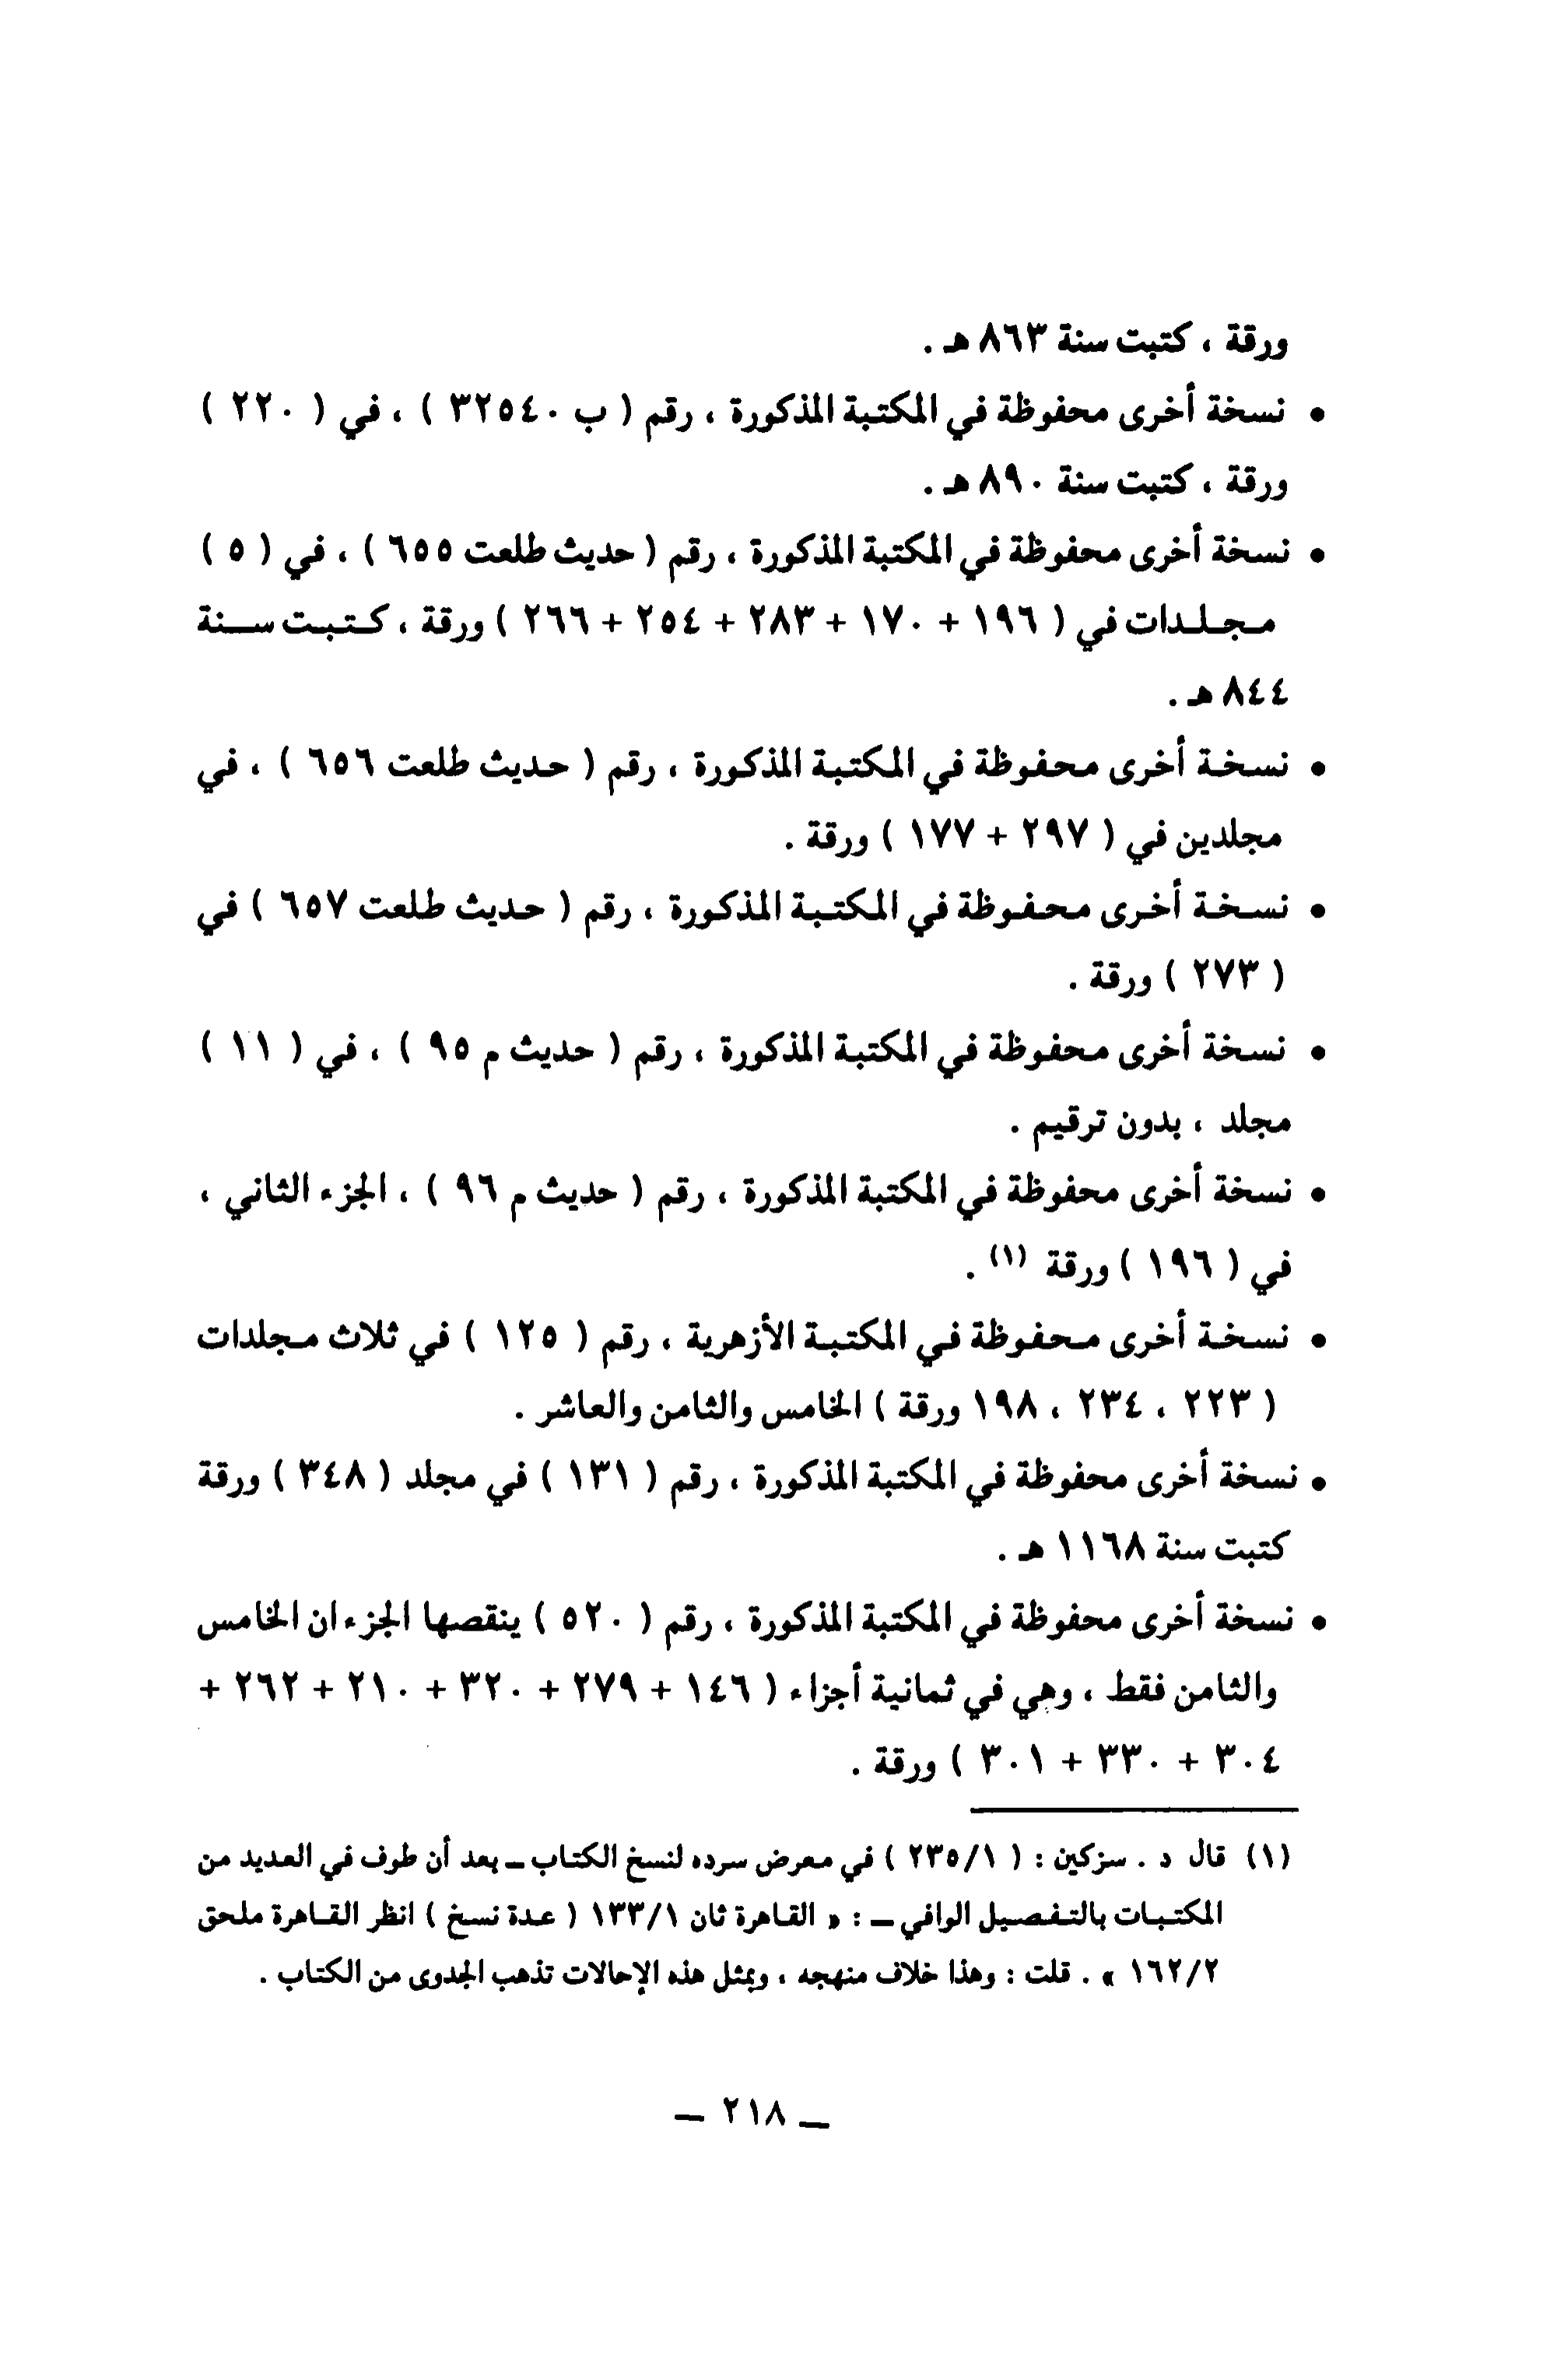 ورقة ، كتبت سنة ٨٦٣ هـ .
• نسخة أخرى محفوظة في المكتبة المذكورة ، رقم ( ب ٣٢٥٤٠ ) ، في ( ٢٢٠ )
ورقة ، كتبت سنة ٨٩٠ هـ .
• نسخة أخرى محفوظة في المكتبة المذكورة ، رقم ( حديث طلعت ٦٥٥ ) ، في ( ٥ )
مجلدات في ( ١٩٦ + ١٧٠ + ٢٨٣ + ٢٥٤ + ٢٦٦ ) ورقة ، كتبت سنة
٨٤٤ هـ .
• نسخة أخرى محفوظة في المكتبة المذكورة ، رقم ( حديث طلعت ٦٥٦ ) ، في
مجلدين في ( ٢٩٧ + ١٧٧ ) ورقة .
• نسخة أخرى محفوظة في المكتبة المذكورة ، رقم ( حديث طلعت ٦٥٧ ) في
( ٢٧٣ ) ورقة .
• نسخة أخرى محفوظة في المكتبة المذكورة ، رقم ( حديث م ٩٥ ) ، في ( ١١ )
مجلد ، بدون ترقيم .
• نسخة أخرى محفوظة في المكتبة المذكورة ، رقم ( حديث م ٩٦ ) ، الجزء الثاني ،
في ( ١٩٦ ) ورقة (١) .
• نسخة أخرى محفوظة في المكتبة الأزهرية ، رقم ( ١٢٥ ) في ثلاث مجلدات
( ٢٢٣ ، ٢٣٤ ، ١٩٨ ورقة ) الخامس والثامن والعاشر .
• نسخة أخرى محفوظة في المكتبة المذكورة ، رقم ( ١٣١ ) في مجلد ( ٣٤٨ ) ورقة
كتبت سنة ١١٦٨ هـ .
• نسخة أخرى محفوظة في المكتبة المذكورة ، رقم ( ٥٢٠ ) ينقصها الجزءان الخامس
والثامن فقط ، وهي في ثمانية أجزاء ( ١٤٦ + ٢٧٩ + ٣٢٠ + ٢١٠ + ٢٦٢ +
٣٠٤ + ٣٣٠ + ٣٠١ ) ورقة .
(١) قال د . سزكين : ( ٢٣٥/١ ) في معرض سرده لنسخ الكتاب ـ بعد أن طوف في العديد من
المكتبات بالتفصيل الوافي ـ : « القاهرة ثان ١٣٣/١ ( عدة نسخ ) انظر القاهرة ملحق
١٦٢/٢ » . قلت : وهذا خلاف منهجه ، وبمثل هذه الإحالات تذهب الجدوى من الكتاب .
ـ ٢١٨ ـ